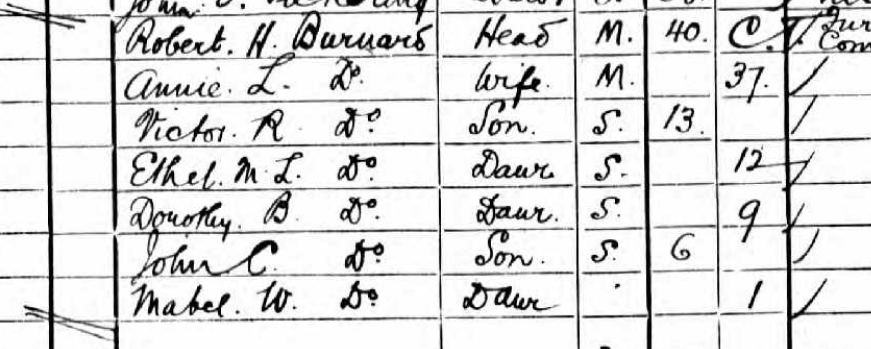 Robert. H. Burnard Head M. 40. C.
Annie. L. Do. Wife. M. 37.
Victor. R Do. Son. S. 13.
Ethel. M. L. Do. Dawr. S. 12
Dorothy. B. Do. Dawr. S. 9
John C. Do. Son. S. 6
Mabel. W. Do Dawr 1